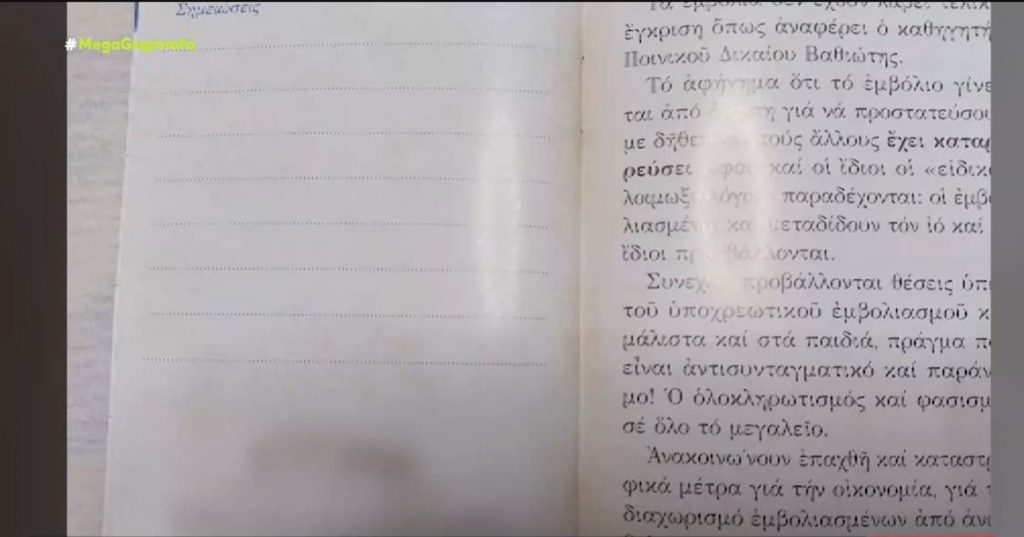 Σημειώσεις
#MegaGegonota
Τά ἐμβόλια δέν ἔχουν λάβει τελικ
ἔγκριση ὅπως ἀναφέρει ὁ καθηγητή
Ποινικοῦ Δικαίου Βαθιώτης.
Τό ἀφήγημα ὅτι τό ἐμβόλιο γίνε
ται ἀπό γιά νά προστατεύσου
με δῆθεν τούς ἄλλους ἔχει καταρ
ρεύσει καί οἱ ἴδιοι οἱ «εἰδικ
λοιμωξιολόγοι» παραδέχονται: οἱ ἐμβο
λιασμένοι καί μεταδίδουν τόν ἰό καί
ἴδιοι προσβάλλονται.
Συνεχῶς προβάλλονται θέσεις ὑπέ
τοῦ ὑποχρεωτικοῦ ἐμβολιασμοῦ κ
μάλιστα καί στά παιδιά, πράγμα π
εἶναι ἀντισυνταγματικό καί παράν
μο! Ὁ ὁλοκληρωτισμός καί φασισμ
σέ ὅλο τό μεγαλεῖο.
Ἀνακοινώνουν ἐπαχθῆ καί καταστρ
φικά μέτρα γιά τήν οἰκονομία, γιά τ
διαχωρισμό ἐμβολιασμένων ἀπό ἀν